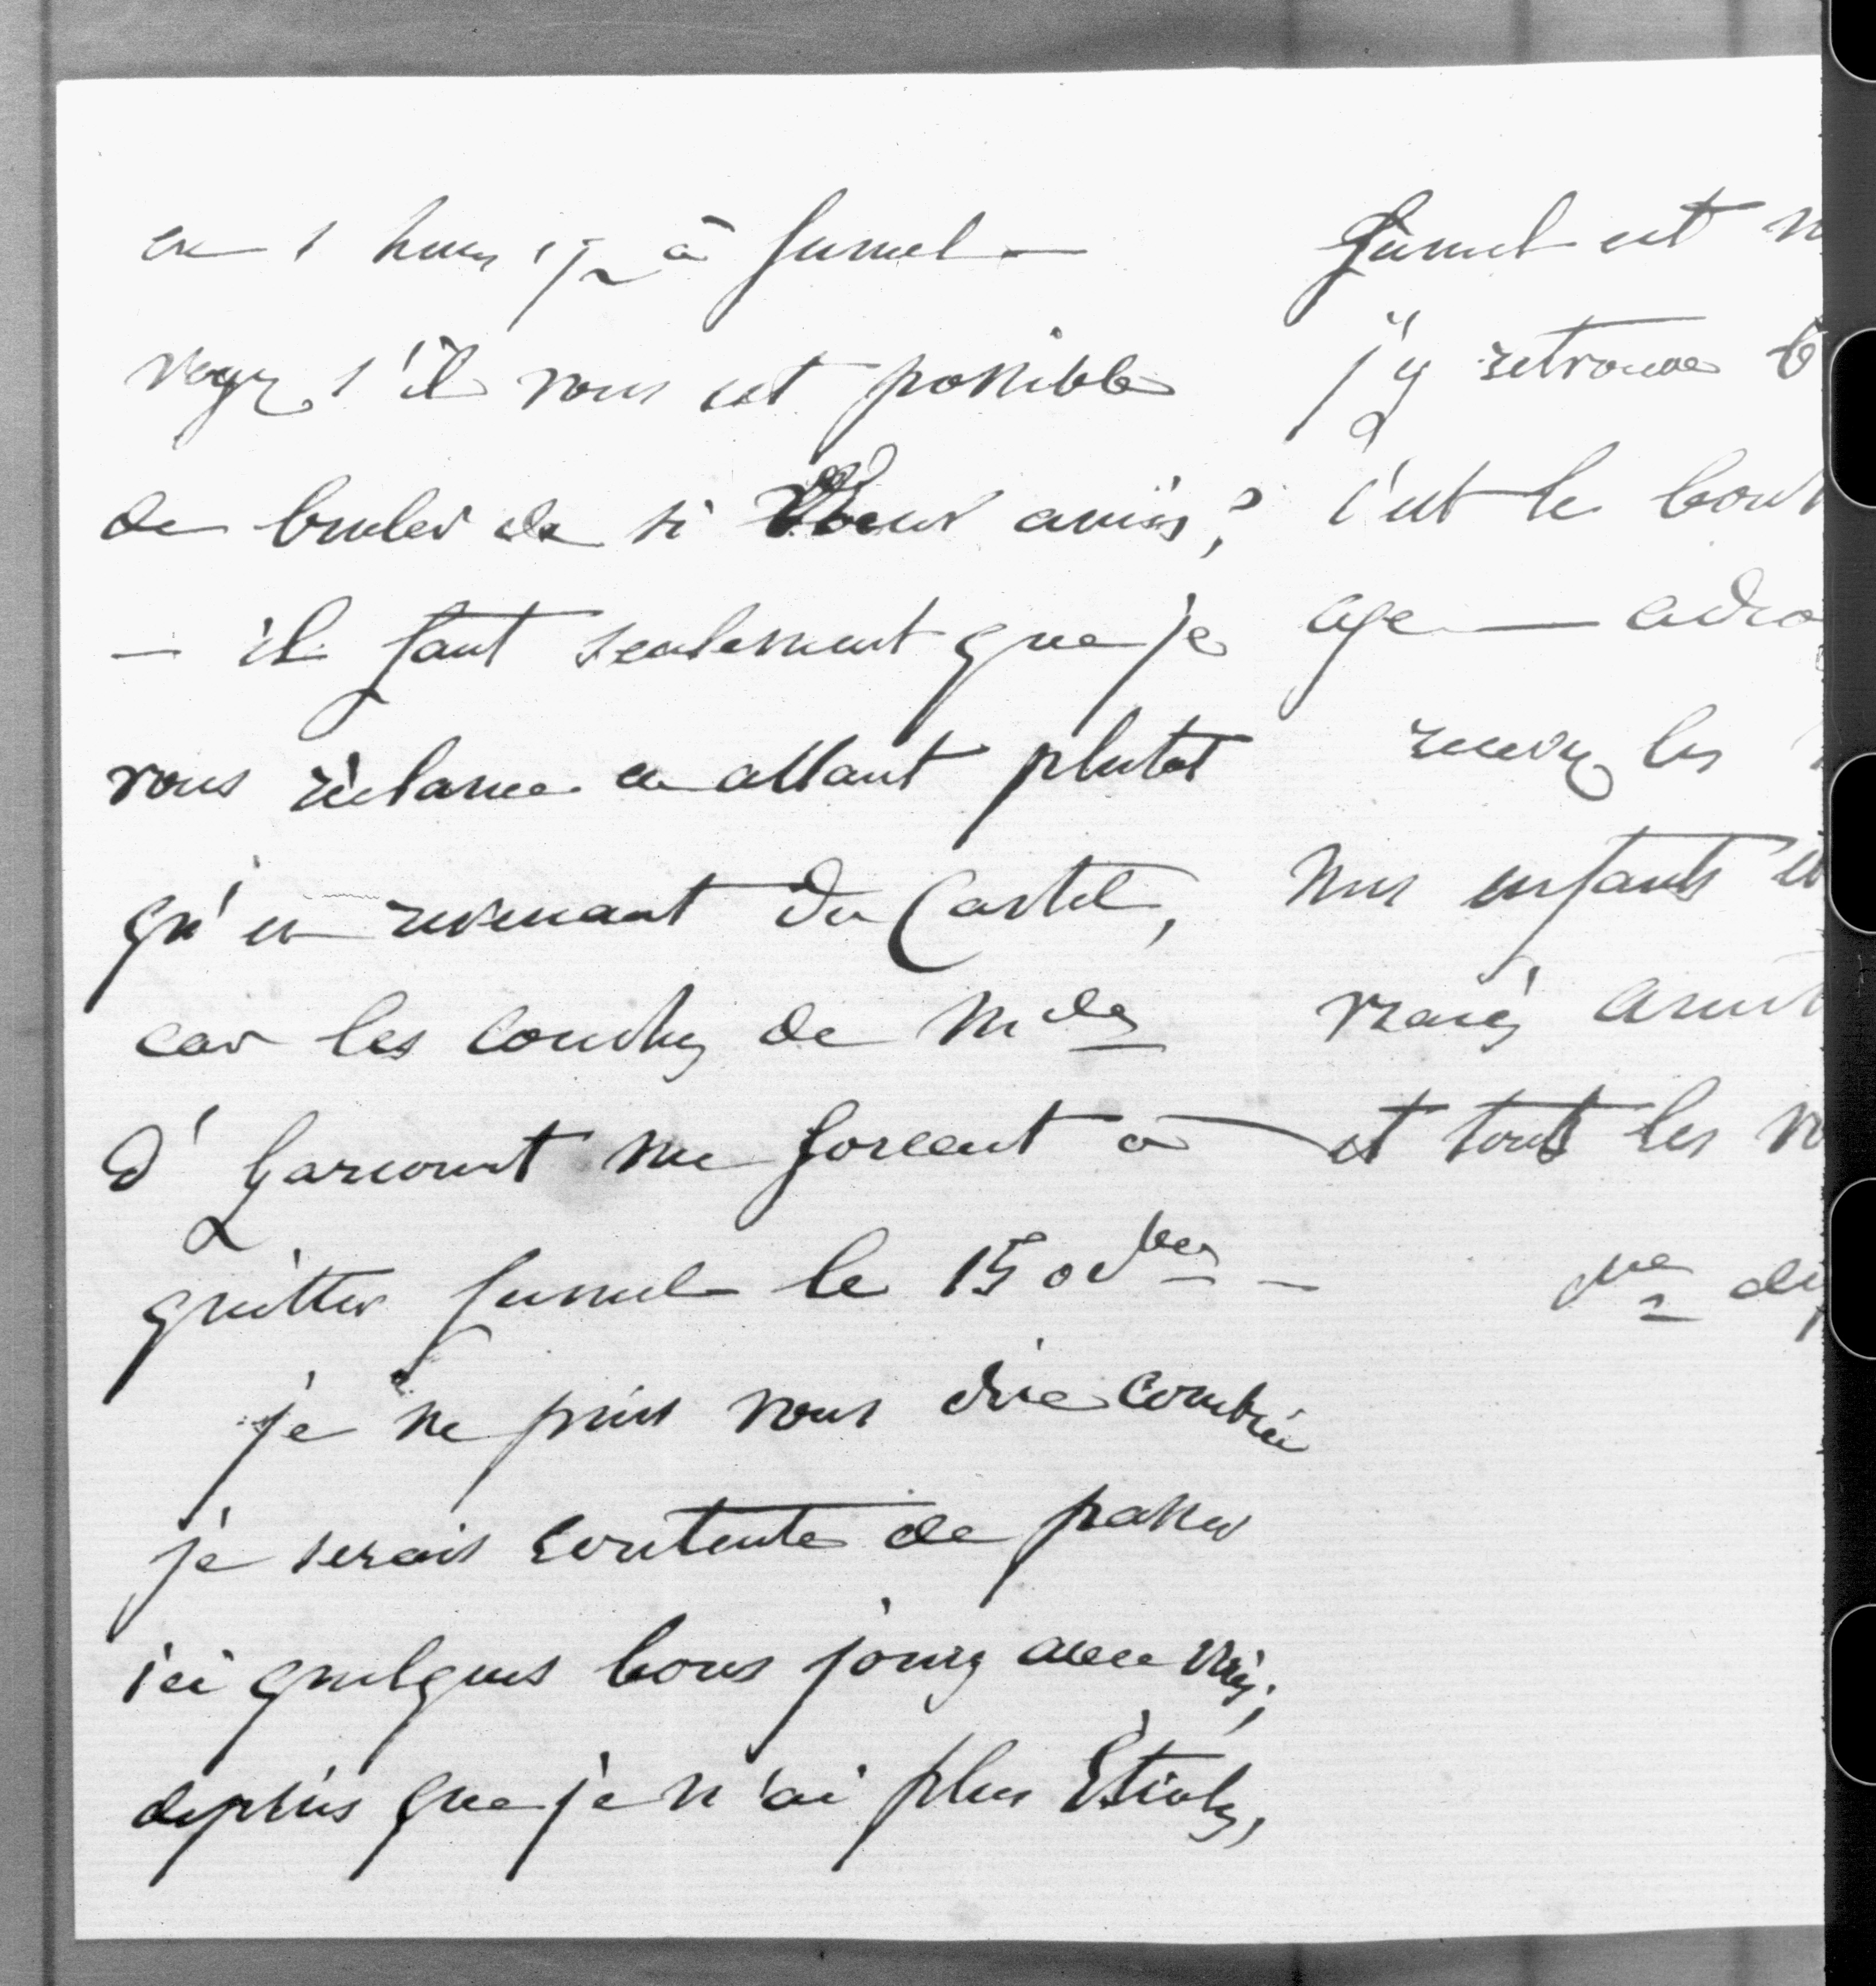 en 1 heure 1/2 à fumel —
voyez, s'il vous est possible
de bruler de si vieux amis,?
— il faut seulement que je
vous réclame en allant plutot
qu'en revenant du Castel,
car les couches de Mde
d'harcourt me forcent à
quitter fumel le 15 obre —
je ne puis vous dire combien
je serais contente de passer
ici quelques bons jours avec vous;
depuis que je n'ai plus Étioles,
fumel est
j'y retrouve
c'est le bout
age —
recevez les
mes enfants et
vraies
et tous les